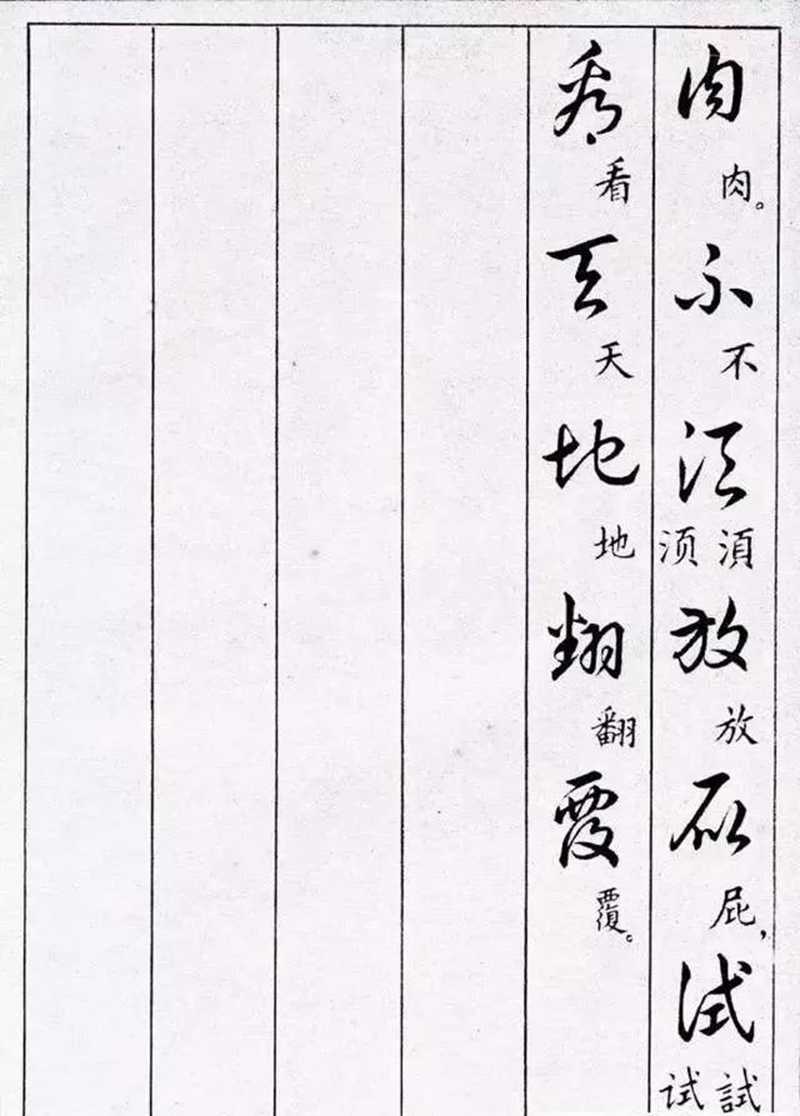 肉肉。不不須須须放放屁屁，試試试
看看天天地地翻翻覆覆。